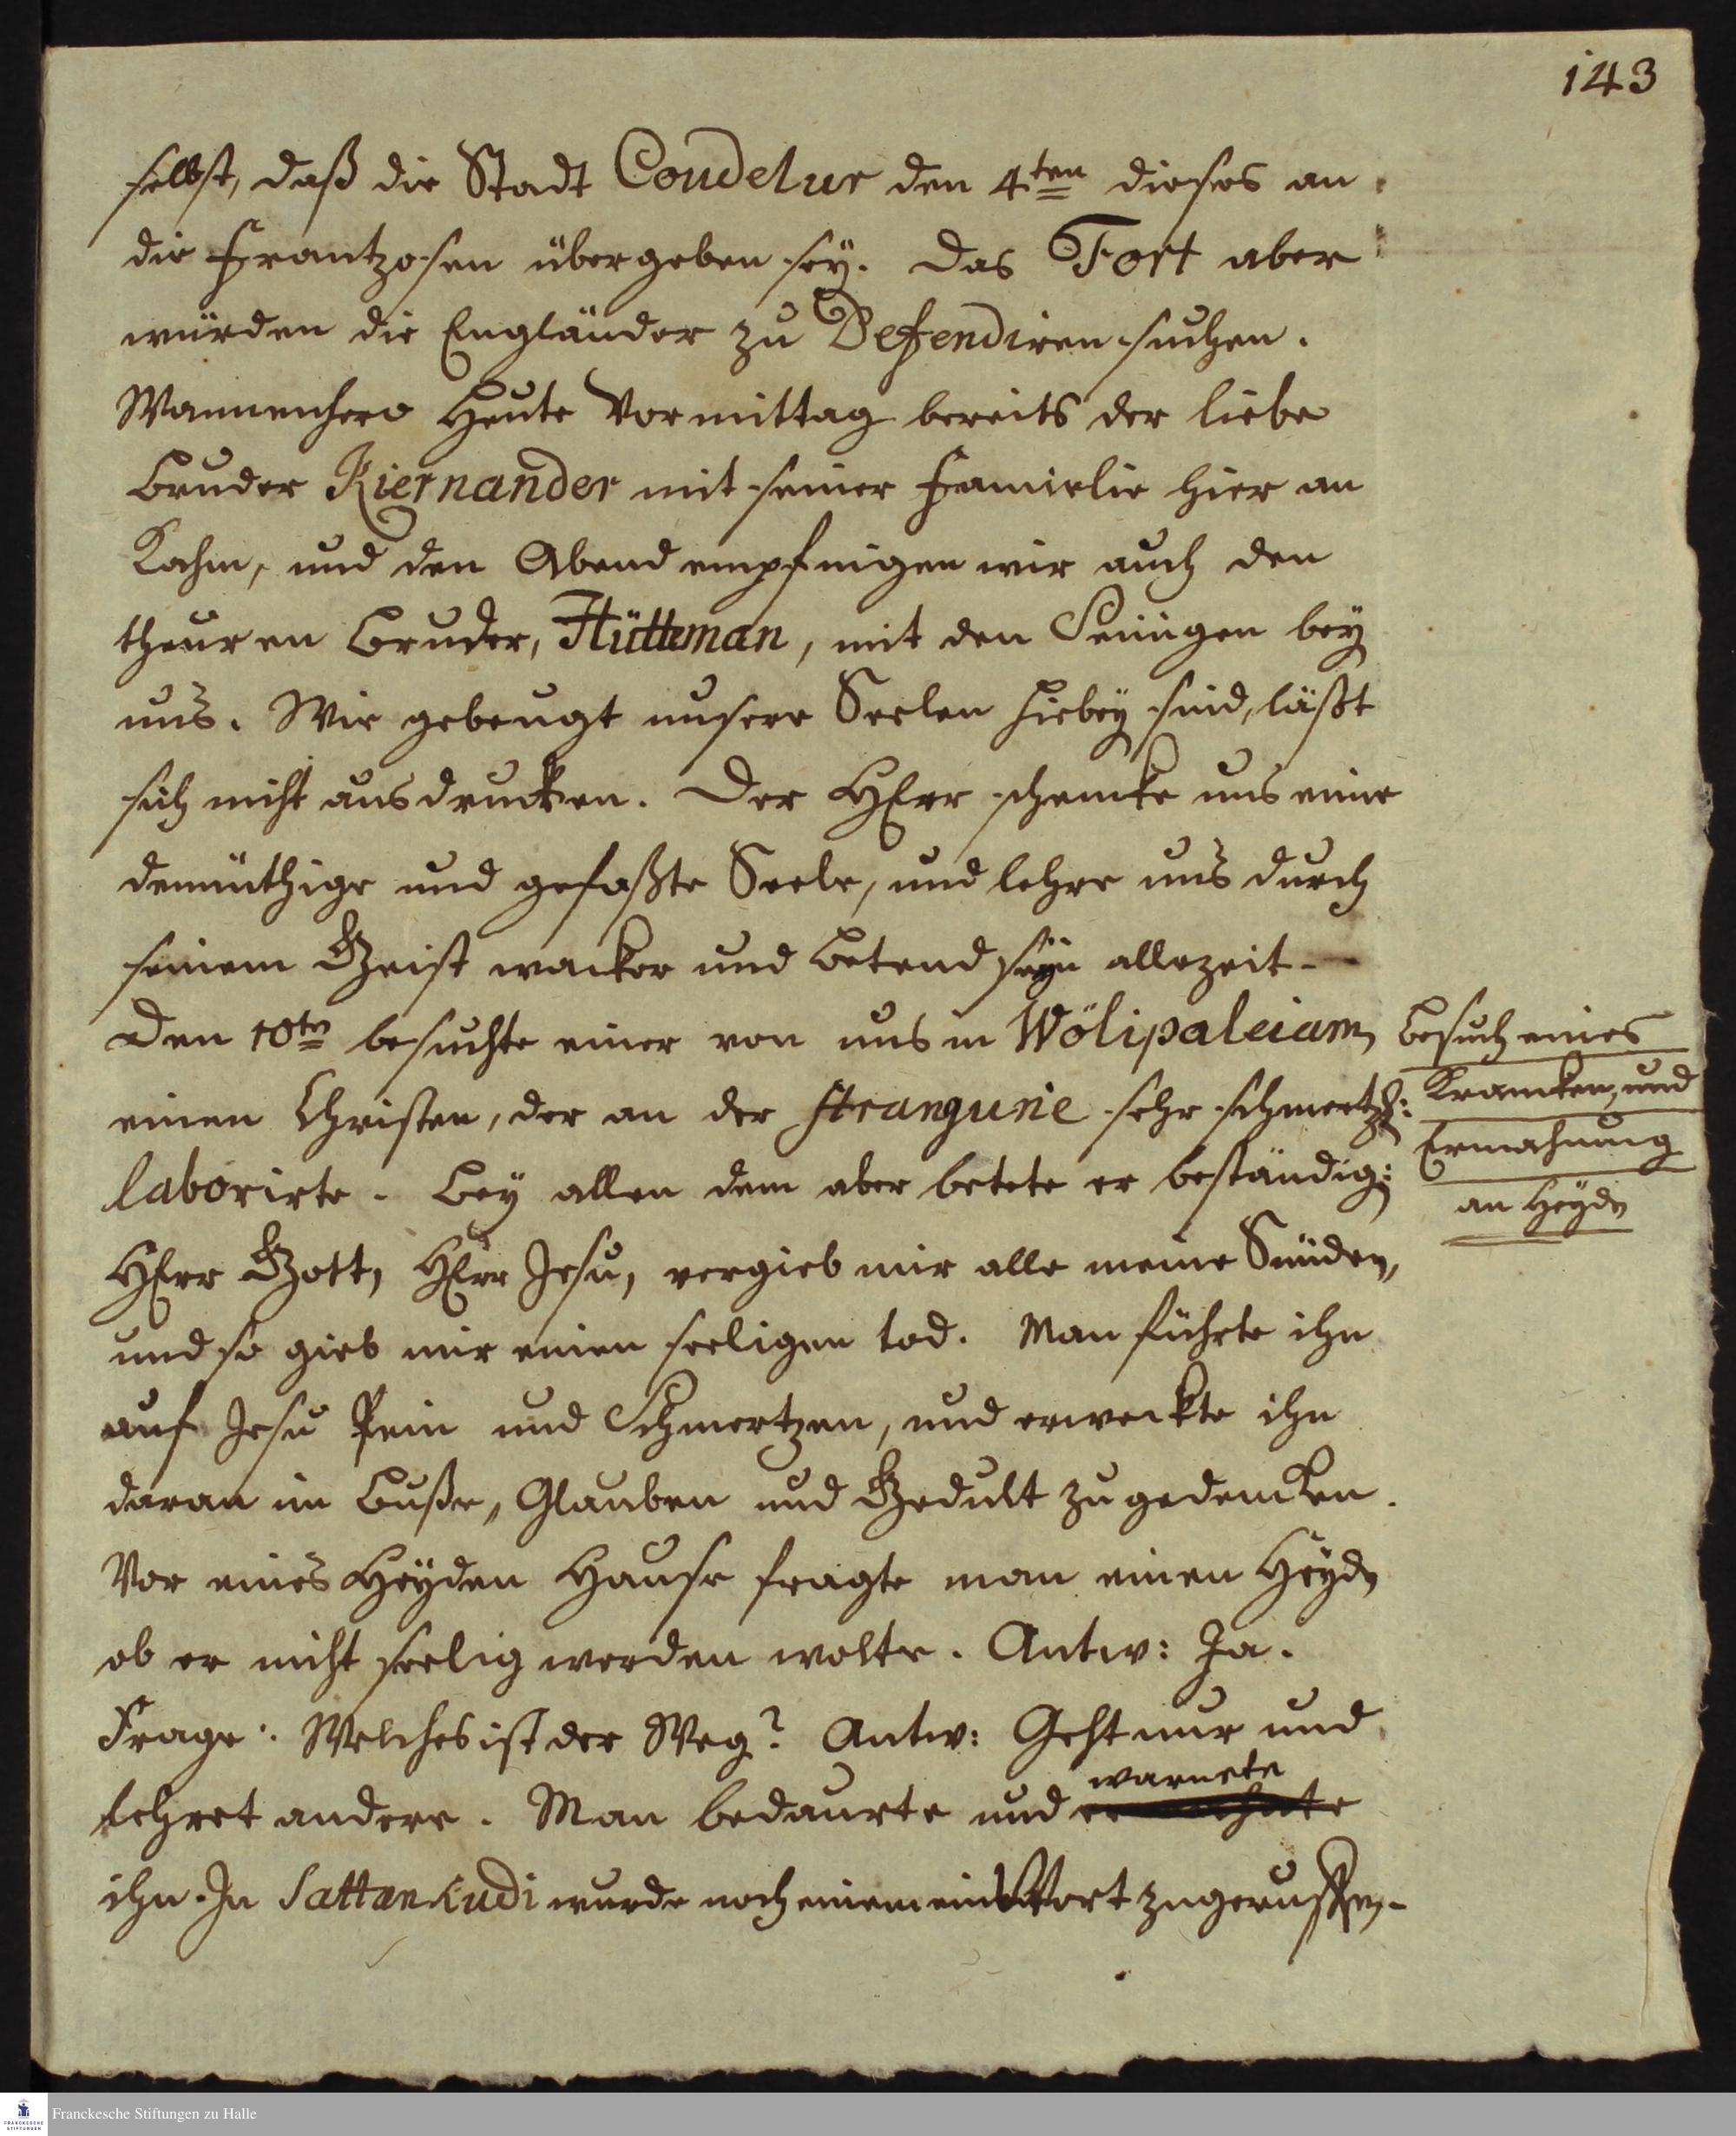 143
selbst, daß die Stadt Coudelur den 4ten dieses an
die Frantzosen übergeben sey. Das Fort aber
würden die Engländer zu Defendiren suchen.
Wannenhero Heute Vormittag bereits der liebe
Bruder Kiernander mit seiner Familie hier an
Kahm, und den Abend empfingen wir auch den
theuren Bruder, Hütteman, mit den Seinigen bey
uns. Wie gebeugt unsere Seelen hiebey sind, läßt
sich nicht ausdrucken. Der HErr schencke uns eine
demüthige und gefaßte Seele, und lehre uns durch
seinem Geist wacker und betend seyn allezeit.
Den 10ten besuchte einer von uns in Wölipaleiam,
einen Christen, der an der strangurie sehr schmertzl:
laborirte. Bey allen dem aber betete er beständig:
HErr Gott, HErr Jesu, vergieb mir alle meine Sünden,
und so gieb mir einen seeligen tod. Man führte ihn
auf Jesu Pein und Schmertzen, und erweckte ihn
daran in Buße, Glauben und Gedult zu gedencken.
Vor eines Heyden Hause fragte man einen Heyden
ob er nicht seelig werden wolte. Antw: Ja.
Frage: Welches ist der Weg? Antw: Geht nur und
lehret andere. Man bedaurte und ermahnte warnete
ihn. In Sattankudi wurde noch einem ein Wort zugeruffen.
Besuch eines
Krancken, und
Ermahnung
an Heyden
Franckesche Stiftungen zu Halle
FRANCKESCHE
STIFTUNGEN